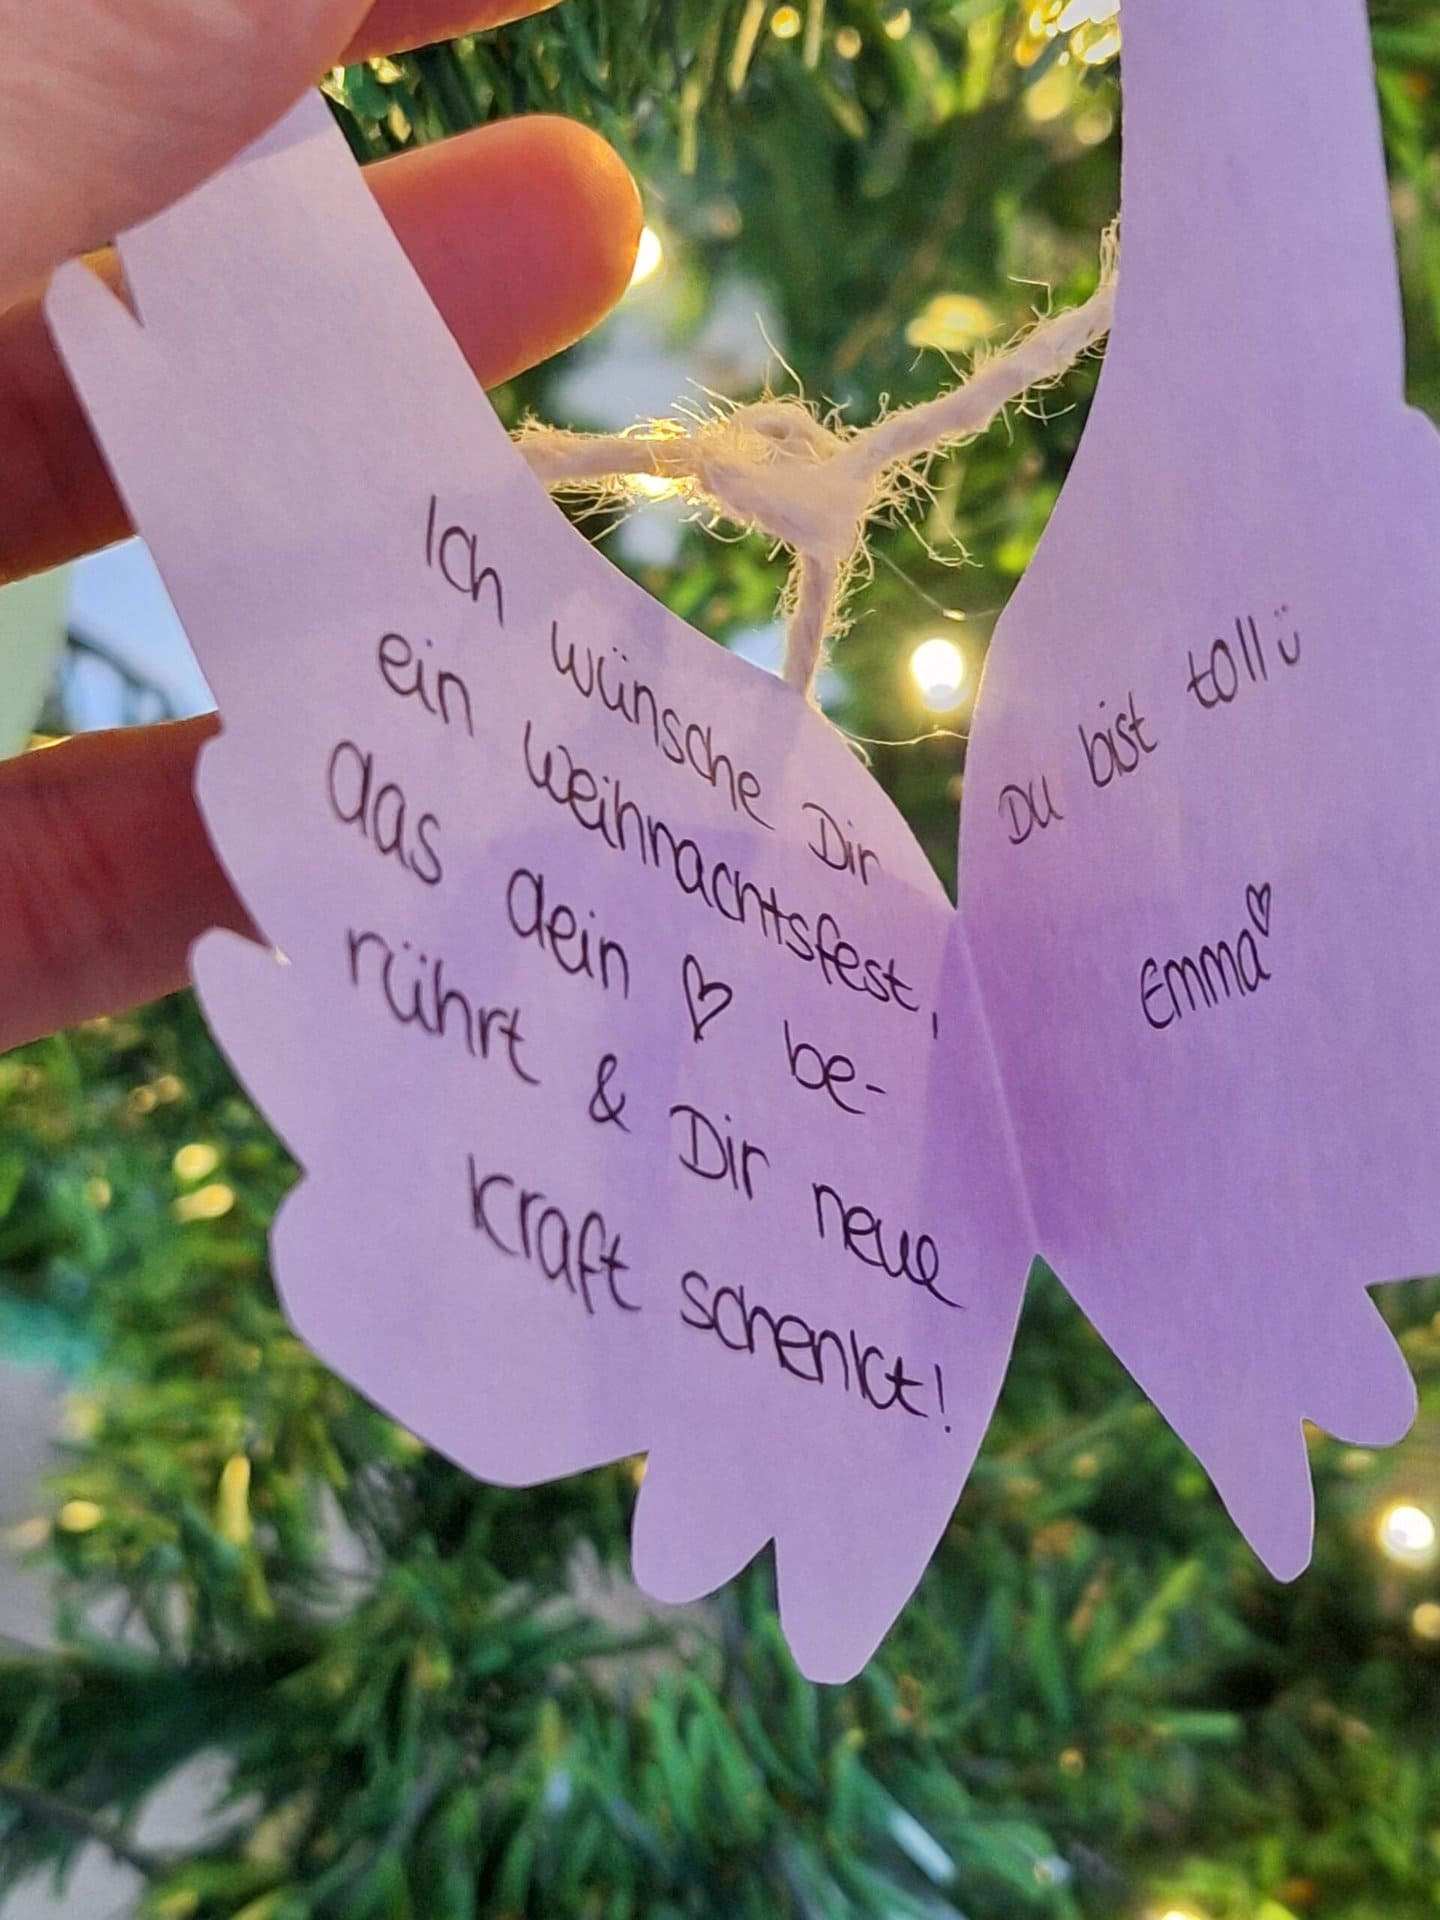 Ich wünsche Dir
ein Weihnachtsfest,
das dein ♡ be-
rührt & Dir neue
Kraft schenkt!
Du bist toll ü
Emma♡